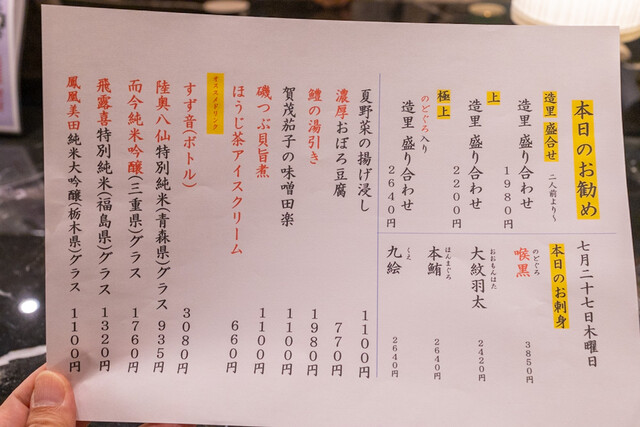 本日のお勧め
七月二十七日木曜日
造里 盛合せ 二人前より～
造里 盛り合わせ 1980円
上
造里 盛り合わせ 2200円
極上
のどぐろ入り
造里 盛り合わせ 2640円
本日のお刺身
のどぐろ
喉黒 3850円
おおもんはた
大紋羽太 2420円
ほんまぐろ
本鮪 2640円
くえ
九絵 2640円
夏野菜の揚げ浸し 1100円
濃厚おぼろ豆腐 770円
鱧の湯引き 1980円
賀茂茄子の味噌田楽 1100円
磯つぶ貝旨煮 1100円
ほうじ茶アイスクリーム 660円
オススメドリンク
すず音(ボトル) 3080円
陸奥八仙特別純米(青森県)グラス 935円
而今純米吟醸(三重県)グラス 1760円
飛露喜特別純米(福島県)グラス 1320円
鳳凰美田純米大吟醸(栃木県)グラス 1100円